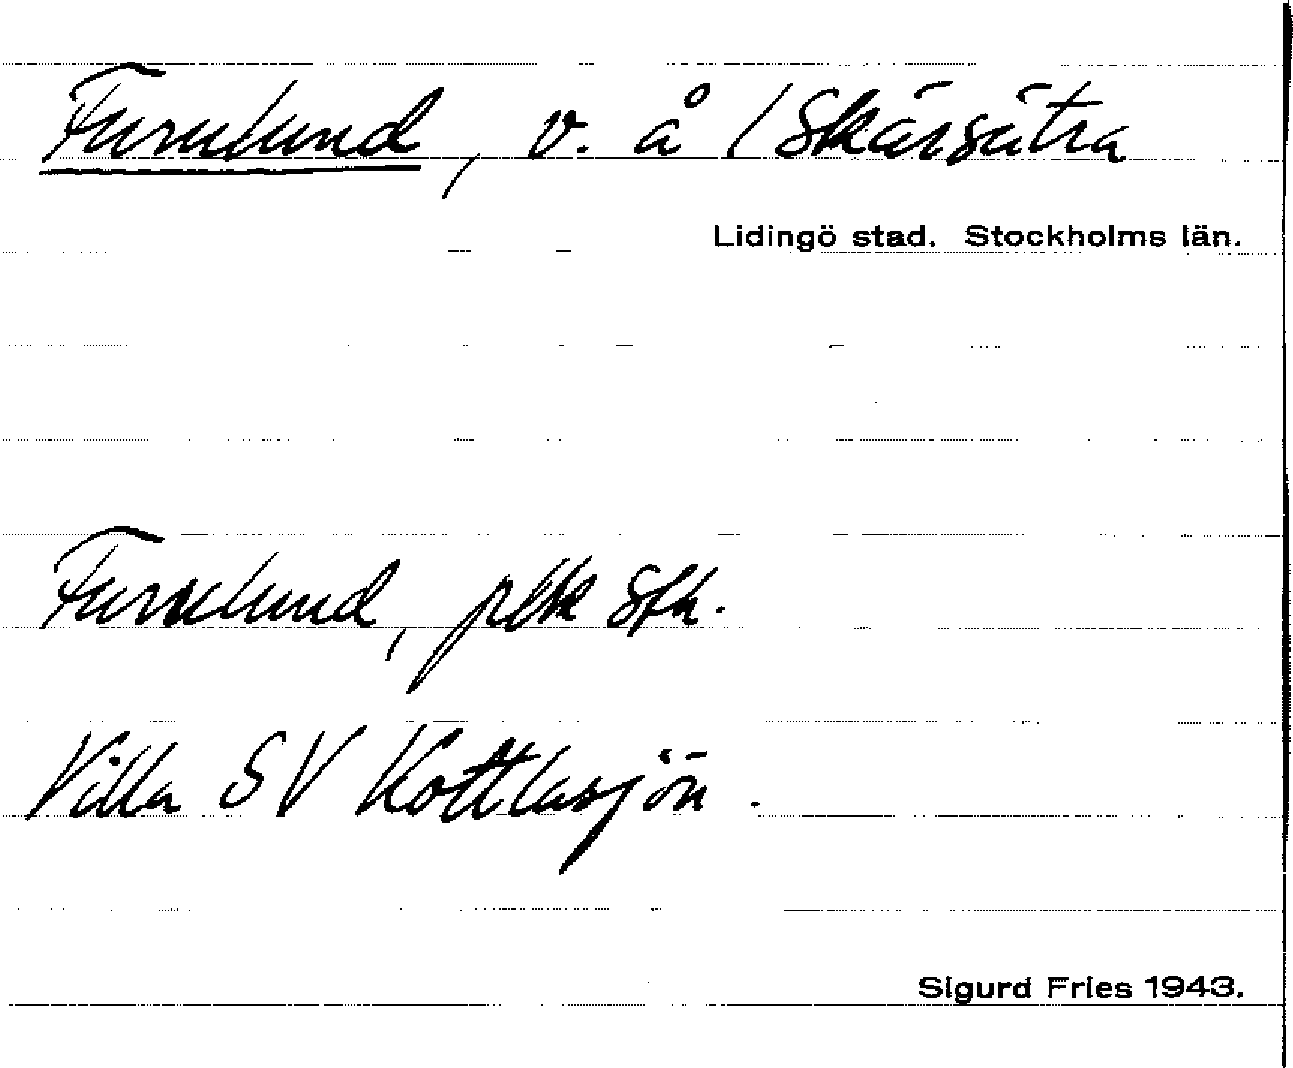 Furulund, v. å / Skärsätra
Lidingö stad. Stockholms län.
Furulund, plbk Sth.
Villa SV Kottlasjön.
Sigurd Fries 1943.